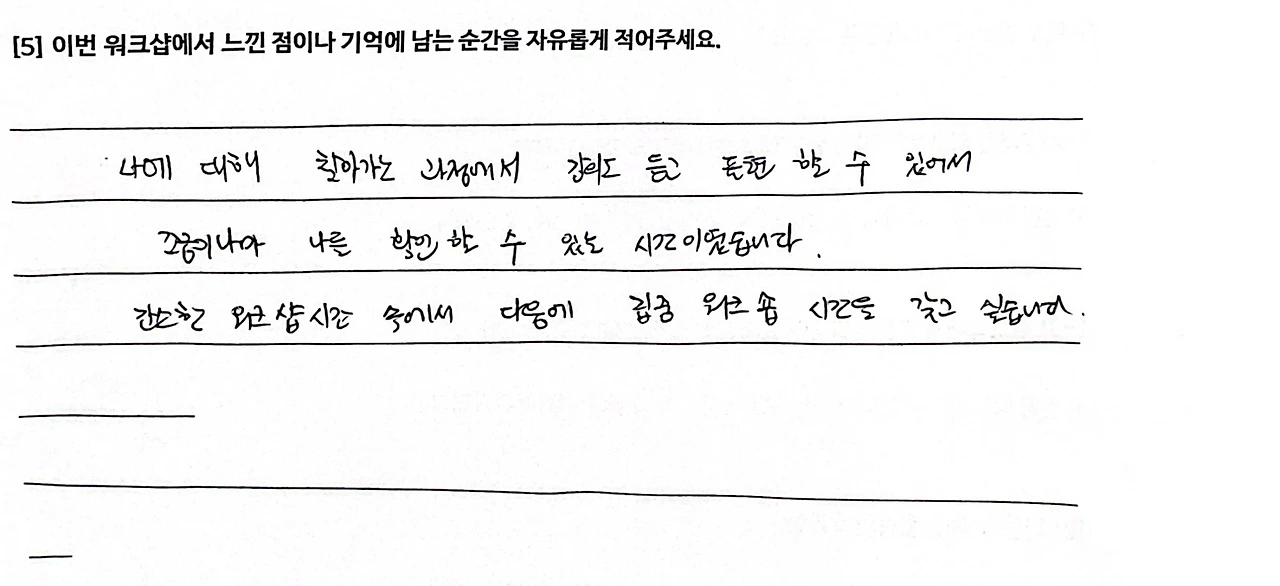 [5] 이번 워크샵에서 느낀 점이나 기억에 남는 순간을 자유롭게 적어주세요.
나에 대해 찾아가는 과정에서 강의도 듣고 표현 할 수 있어서
조금이나마 나를 확인 할 수 있는 시간이였습니다.
간소한 워크샵시간 속에서 다음에 집중 워크숍 시간을 갖고 싶습니다.